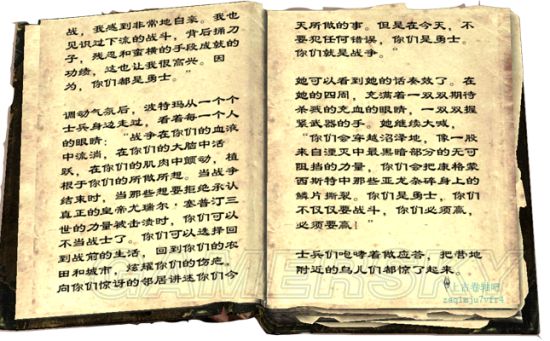 战，我感到非常地自豪。我也
见识过下流的战斗，背后捅刀
子，残忍和蛮横的手段成就的
功绩，这也让我很高兴。因
为，你们都是勇士。”
调动气氛后，波特玛从一个个
士兵身边走过，看着每一个人
的眼睛：“战争在你们的血液
中流淌，在你们的大脑中活
跃，在你们的肌肉中颤动，植
根于你们的所做所想。当战争
结束时，当那些想要拒绝承认
真正的皇帝尤瑞尔·塞普汀三
世的力量被击溃时，你们可以
不当战士了。你们可以选择回
到战前的生活，回到你们的农
田和城市，炫耀你们的伤疤，
向你们惊讶的邻居讲述你们今
天所做的事。但是在今天，不
要犯任何错误，你们是勇士。
你们就是战争。”
她可以看到她的话奏效了。在
她的四周，充满着一双双期待
杀戮的充血的眼睛，一双双握
紧武器的手。她继续大喊，
“你们会穿越沼泽地，像一股
来自湮灭中最黑暗部分的无可
阻挡的力量，你们会把康格蒙
西斯特中那些亚龙杂碎身上的
鳞片撕裂。你们是勇士，你们
不仅仅要战斗，你们必须赢，
必须要赢！”
士兵们咆哮着做应答，把营地
附近的鸟儿们都惊了起来。
GAMERSKY
上古卷轴吧
zaqimju7vfr4